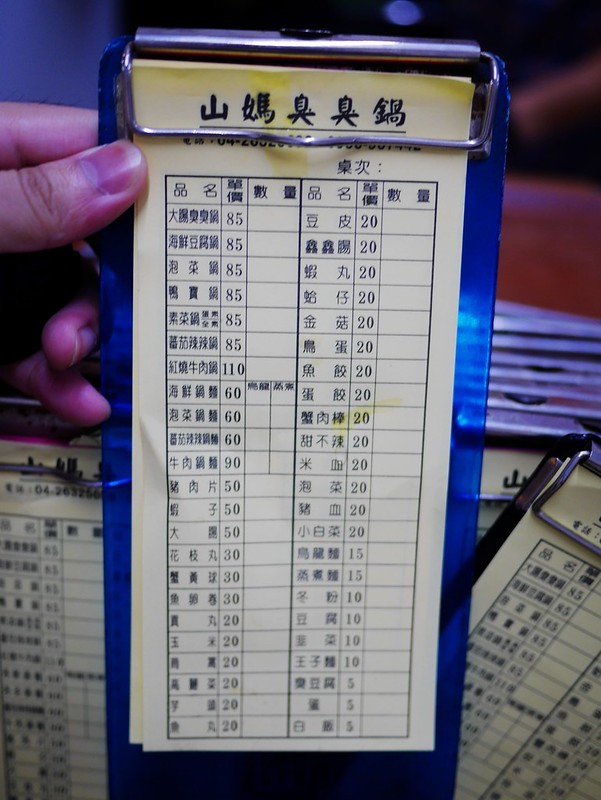 山媽臭臭鍋
桌次：
品名 單價 數量 品名 單價 數量
大腸臭臭鍋 85 豆皮 20
海鮮豆腐鍋 85 鑫鑫腸 20
泡菜鍋 85 蝦丸 20
鴨寶鍋 85 蛤仔 20
素菜鍋 蛋素 全素 85 金菇 20
蕃茄辣辣鍋 85 鳥蛋 20
紅燒牛肉鍋 110 魚餃 20
海鮮鍋麵 60 烏龍 蒸煮 蛋餃 20
泡菜鍋麵 60 蟹肉棒 20
蕃茄辣辣鍋麵 60 甜不辣 20
牛肉鍋麵 90 米血 20
豬肉片 50 泡菜 20
蝦子 50 豬血 20
大腸 50 小白菜 20
花枝丸 30 烏龍麵 15
蟹黃球 30 蒸煮麵 15
魚卵卷 30 冬粉 10
貢丸 20 豆腐 10
玉米 20 韭菜 10
茼蒿 20 王子麵 10
高麗菜 20 臭豆腐 5
芋頭 20 蛋 5
魚丸 20 白飯 5